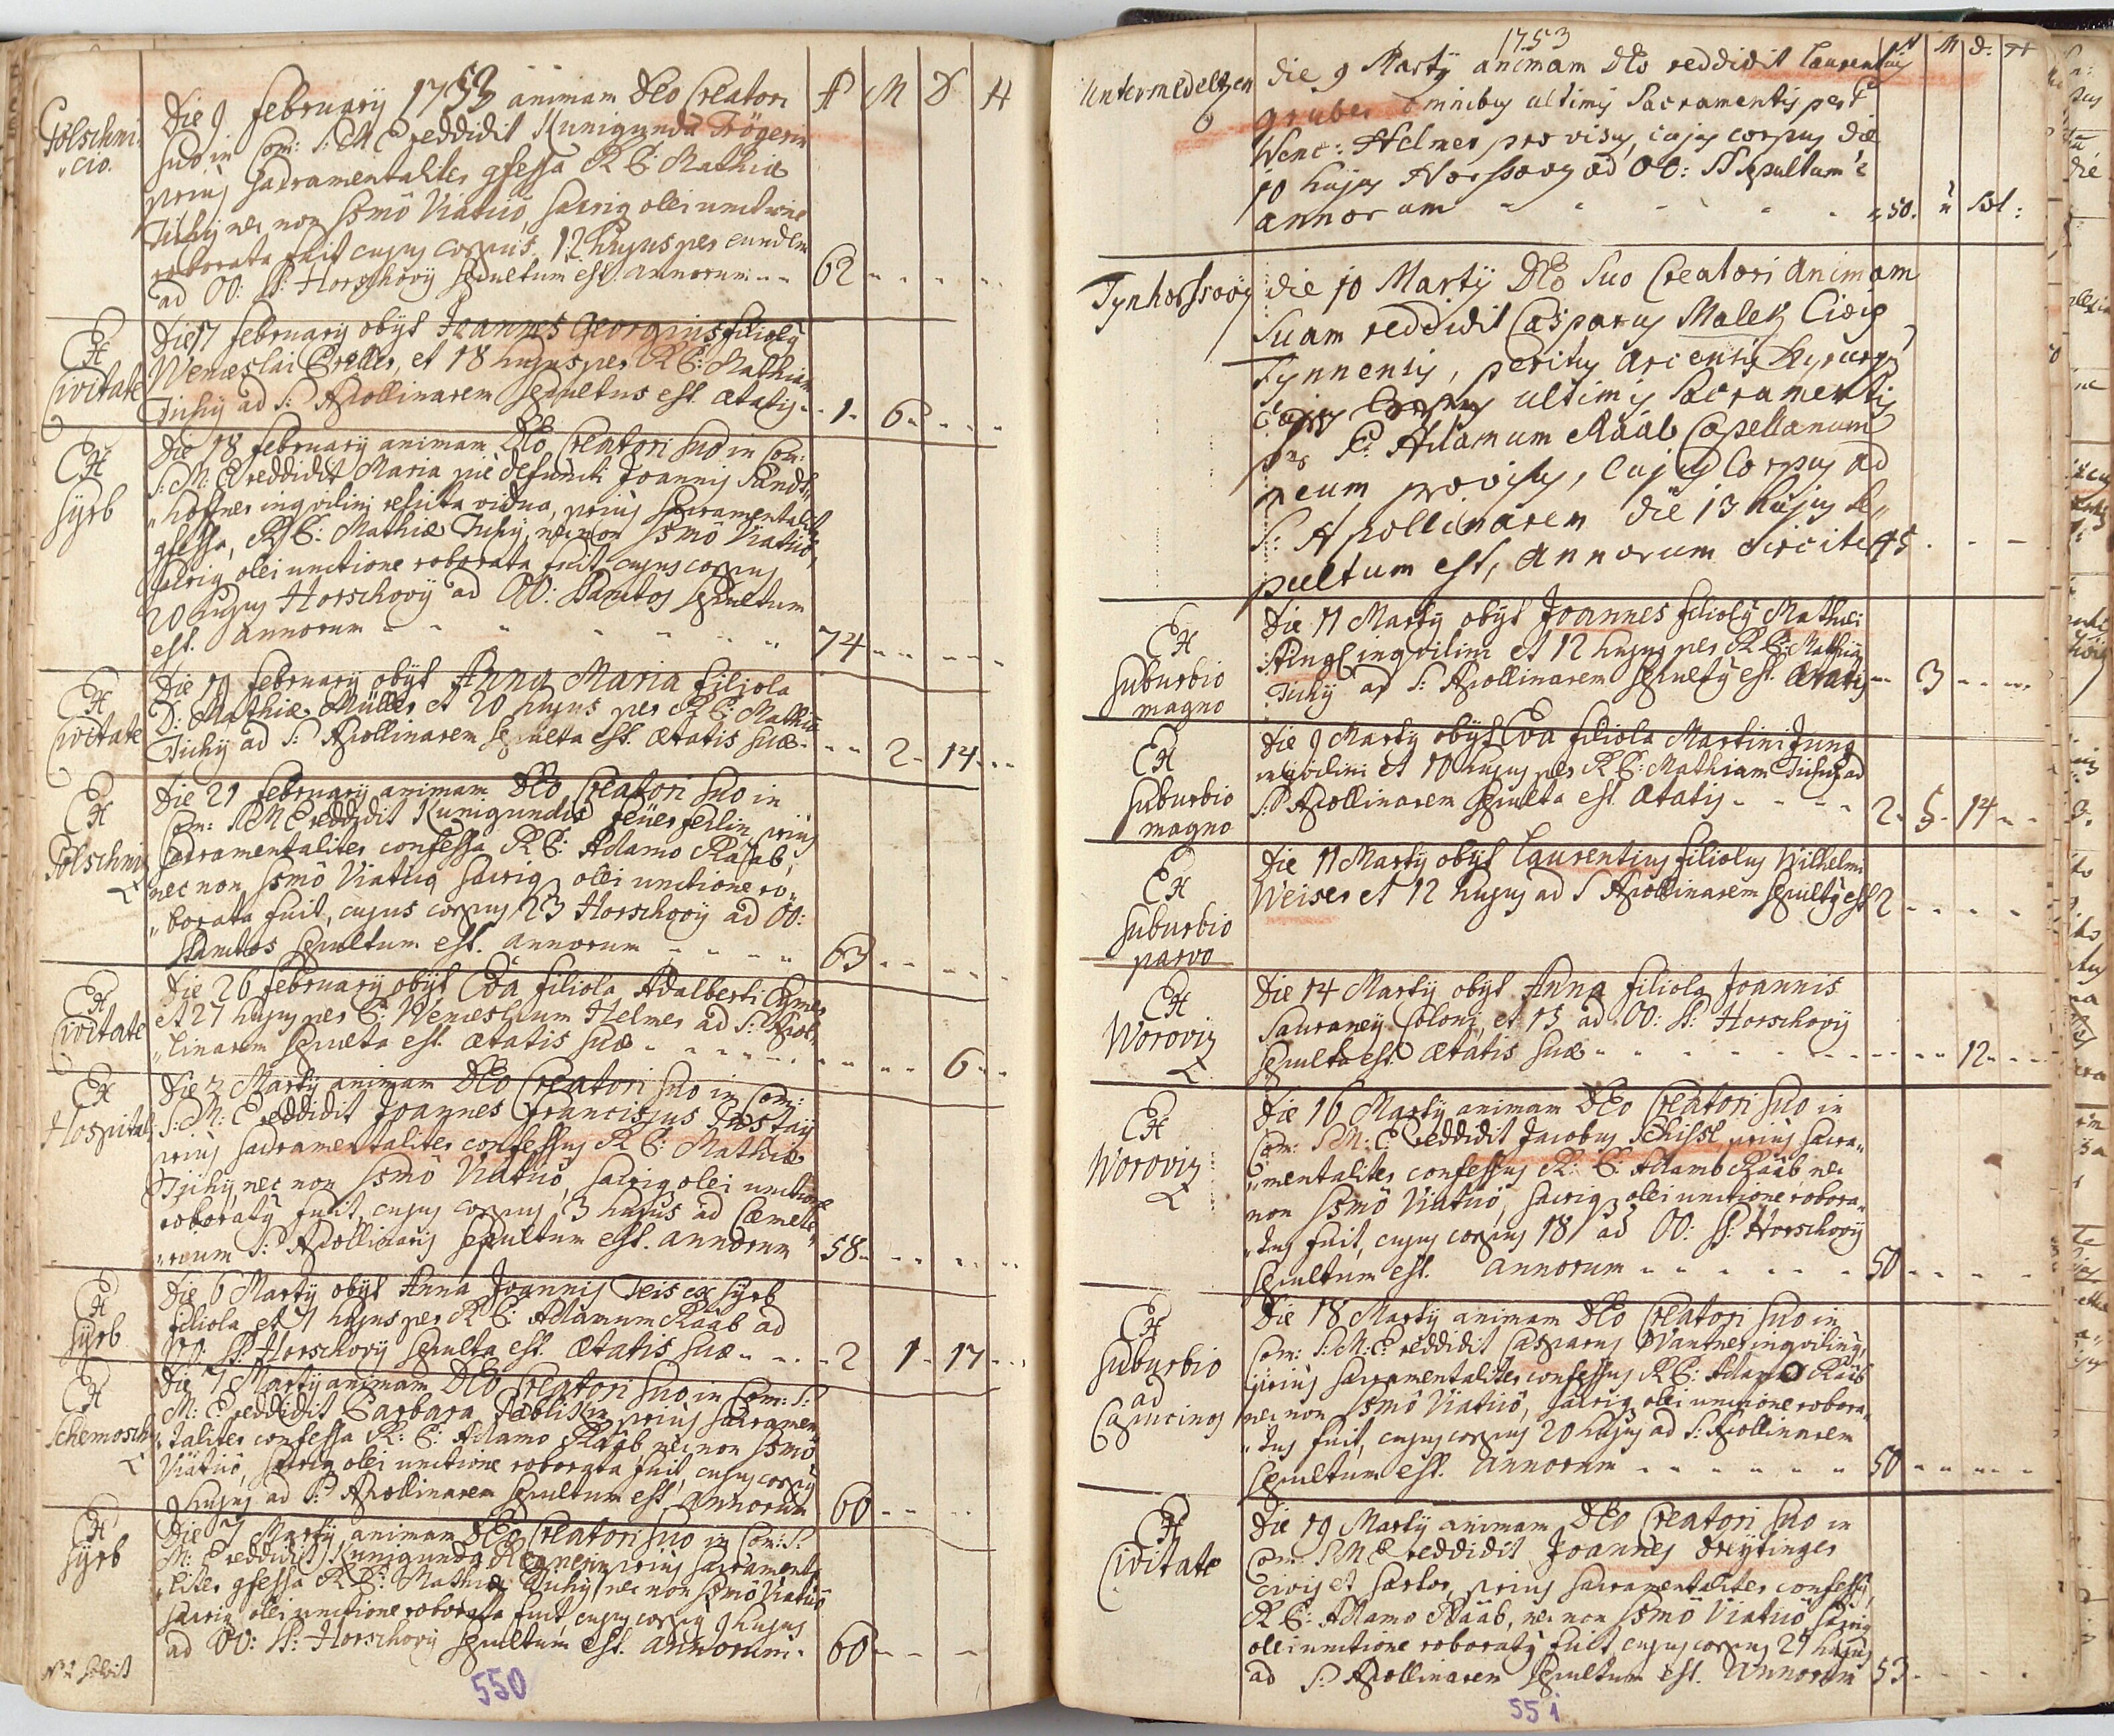 A M D H
Die 9 February 1753 animam DEo Creatori
suo in Com: S: M: E reddidit Kunigunda Trögerin
prius Sacramentaliter gfessa R P: Mathiæ
Tichij nec non ssmô Viaticô, sacriq olei unctione
roborata fuit cujus corpus 12 hujus per eundem
ad OO: SS: Horschovij sepultum est annorum - - 62
Ex
Civitate
Die 17 February obijt Joannes Georgius filiolq
Wenceslai Preller, et 18 hujus per R P: Mathiam
Tichij ad S: Apollinarem sepultus est. ætatis - - 1 - 6
Ex
Syrb
Die 18 February animam DEo Creatori suo in Com:
S: M: E reddidit Maria pie defuncti Joannis Sandt
hoffner inqvilini relicta vidua, prius sacramentaliter
gfessa, R P: Mathiæ Tichij, nec non ssmô Viaticô,
sacriq olei unctione roborata fuit cujus corpus
20 hujus Horschovij ad OO: Sanctos sepultum
est. annorum - - 74
Ex
Civitate
Die 19 February obijt Anna Maria filiola
D: Mathiæ Müller et 20 hujus per R P: Mathiam
Tichij ad S: Apollinarem sepulta est. ætatis suæ - - 2 - 14
Ex
Die 21 February animam DEo Creatori suo in
Com: S M E reddidit Kunigunda prius
sacramentaliter confessa R P: Adamo Raab,
nec non ssmô Viaticô sacriq olei unctione ro„
„borata fuit, cujus corpus 23 Horschovij ad OO:
Sanctos sepultum est. annorum - - 63
Ex
Civitate
Die 26 February obijt Eva filiola Adalberti
et 27 hujus per P: Wenceslaum Helmer ad S: Apol„
„linarem sepulta est ætatis suæ - - 6
Ex
Hospitali
Die 2 Martij animam DEo Creatori suo in Com:
S: M: E reddidit Joannes Franciscus
prius sacramentaliter confessus R P: Mathiæ
Tichij, nec non ssmô Viaticô, sacriq olei unctione
roboratq fuit, cujus corpus 3 hujus ad Cæmete„
„rium S: Apollinaris sepultum est. annorum 58
Ex
Syrb
Die 6 Martij obijt Anna Joannis Teis ex Syrb
filiola et 7 hujus per R P: Adamum Raab ad
OO: SS: Horschovij sepulta est. ætatis suæ - - 2 1 - 17
Ex
Die 7 Martij animam DEo Creatori suo in Com: S:
M: E: reddidit Barbara prius sacramen„
„taliter confessa R: P: Adamo Raab, nec non ssmô
Viaticô, sacriq olei unctione roborata fuit, cujus corpus
9 hujus ad S: Apollinarem sepultum est annorum 60
Ex
Syrb
Die 7 Martij animam DEo Creatori suo in Com: S:
M: E reddidit Kunigunda prius sacramenta
„liter gfessa R P: Mathiæ Tichij nec non ssmô Viaticô
sacriq olei unctione roborata fuit, cujus corpus 9 hujus
ad OO: SS: Horschovij sepultum est. annorum - 60
550
1753
A M D H
Untermedelzen
die 9 Martij animam DEo reddidit Laurentius
gruber omnibus ultimis Sacramentis per P
Wenc: Helmer provisus, cujus corpus die
10 hujus Horssovij ad OO: SS sepultum e
annorum - - 50.
Tynhorssovy
die 10 Martij DEo Suo Creatori Animam
Suam reddidit Casparus Malek Civis
Tynnensis, peritus
cujus corpus ultimis Sacramentis
per P: Adamum Raab Capellanum
meum provisus, cujus Corpus ad
S: Apollinarem die 13 hujus se„
pultum est, annorum circiter 45
Ex
Suburbio
magno
Die 11 Martij obijt Joannes filiolq Mathæi
inqvilini et 12 hujus per R P: Mathiam
Tichij ad S: Apollinarem sepultq est. ætatis - - 3
Ex
Suburbio
magno
Die 9 Martij obijt Eva filiola Martini Jung
inqvilini et 10 hujus per R P: Mathiam Tichij ad
S: Apollinarem sepulta est ætatis - - 2 - 5 - 14
Ex
Suburbio
parvo
Die 11 Martij obijt Laurentius filiolus Wilhelmi
Weiser et 12 hujus ad S Apollinarem sepultq est 2
Ex
Woroviz
Die 14 Martij obijt Anna filiola Joannis
coloni, et 15 ad OO: SS: Horschovij
sepulta est ætatis suæ - - 12
Ex
Woroviz
Die 16 Martij animam DEo Creatori suo in
Com: S: M: E reddidit Jacobus Schissl, prius sacra„
„mentaliter confessus R: P: Adamo Raab, nec
non ssmô Viaticô, sacriq olei unctione robora„
„tus fuit, cujus corpus 18 ad OO: SS: Horschovij
sepultum est. annorum - - 50
Ex
Suburbio
ad
Capucinos
Die 18 Martij animam DEo Creatori suo in
Com: S: M: E: reddidit Casparus Wantner inqvilinus,
prius sacramentaliter confessus R P: Adamo Raab
nec non ssmô Viaticô, sacriq olei unctione robora„
„tus fuit, cujus corpus 20 hujus ad S: Apollinarem
sepultum est. annorum - - 50
Ex
Civitate
Die 19 Martij animam DEo Creatori suo in
Com: S M E reddidit Joannes Dreytinger
civis et sartor, prius sacramentaliter confessq
R P: Adamo Raab, nec non ssmô Viaticô sacriq
olei unctione roboratq fuit cujus corpus 21 hujus
ad S: Apollinarem sepultum est. Annorum 53
551